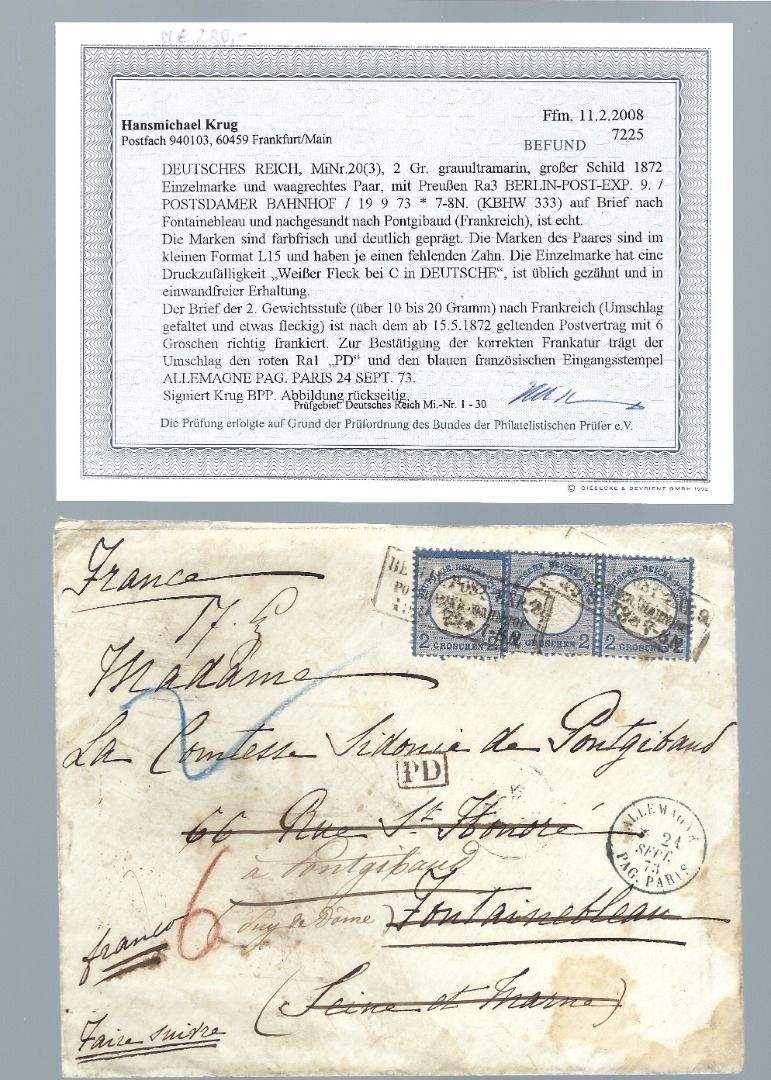 M € 280,-
Hansmichael Krug
Postfach 940103, 60459 Frankfurt/Main
Ffm, 11.2.2008
7225
BEFUND
DEUTSCHES REICH, MiNr.20(3), 2 Gr. grauultramarin, großer Schild 1872
Einzelmarke und waagrechtes Paar, mit Preußen Ra3 BERLIN-POST-EXP. 9. /
POSTSDAMER BAHNHOF / 19 9 73 * 7-8N. (KBHW 333) auf Brief nach
Fontainebleau und nachgesandt nach Pontgibaud (Frankreich), ist echt.
Die Marken sind farbfrisch und deutlich geprägt. Die Marken des Paares sind im
kleinen Format L15 und haben je einen fehlenden Zahn. Die Einzelmarke hat eine
Druckzufälligkeit „Weißer Fleck bei C in DEUTSCHE“, ist üblich gezähnt und in
einwandfreier Erhaltung.
Der Brief der 2. Gewichtsstufe (über 10 bis 20 Gramm) nach Frankreich (Umschlag
gefaltet und etwas fleckig) ist nach dem ab 15.5.1872 geltenden Postvertrag mit 6
Groschen richtig frankiert. Zur Bestätigung der korrekten Frankatur trägt der
Umschlag den roten Ra1 „PD“ und den blauen französischen Eingangsstempel
ALLEMAGNE PAG. PARIS 24 SEPT. 73.
Signiert Krug BPP. Abbildung rückseitig.
Prüfgebiet: Deutsches Reich Mi.-Nr. 1 - 30
Die Prüfung erfolgte auf Grund der Prüfordnung des Bundes der Philatelistischen Prüfer e.V.
© GIESECKE & DEVRIENT GMBH 1992
France
2 GROSCHEN 2
GROSCHEN 2
2 GROSCHEN
Madame
La Comtesse Sidonie de Pontgibaud
PD
66 Rue St Honoré
ALLEMAGNE
24
SEPT.
73
PAG. PARIS
à Pontgibaud
6
(Puy de Dôme)
Fontainebleau
franco
(Seine et Marne)
Faire suivre